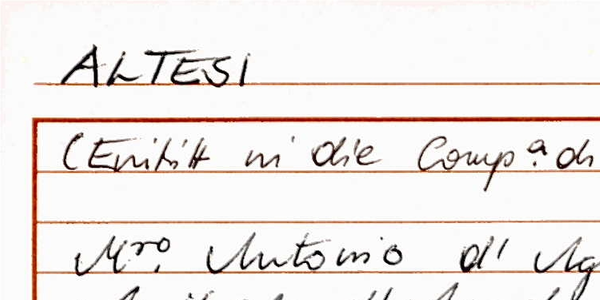 ALTESI
(Eintritt in die Compª. di
Mro. Antonio d'Ag